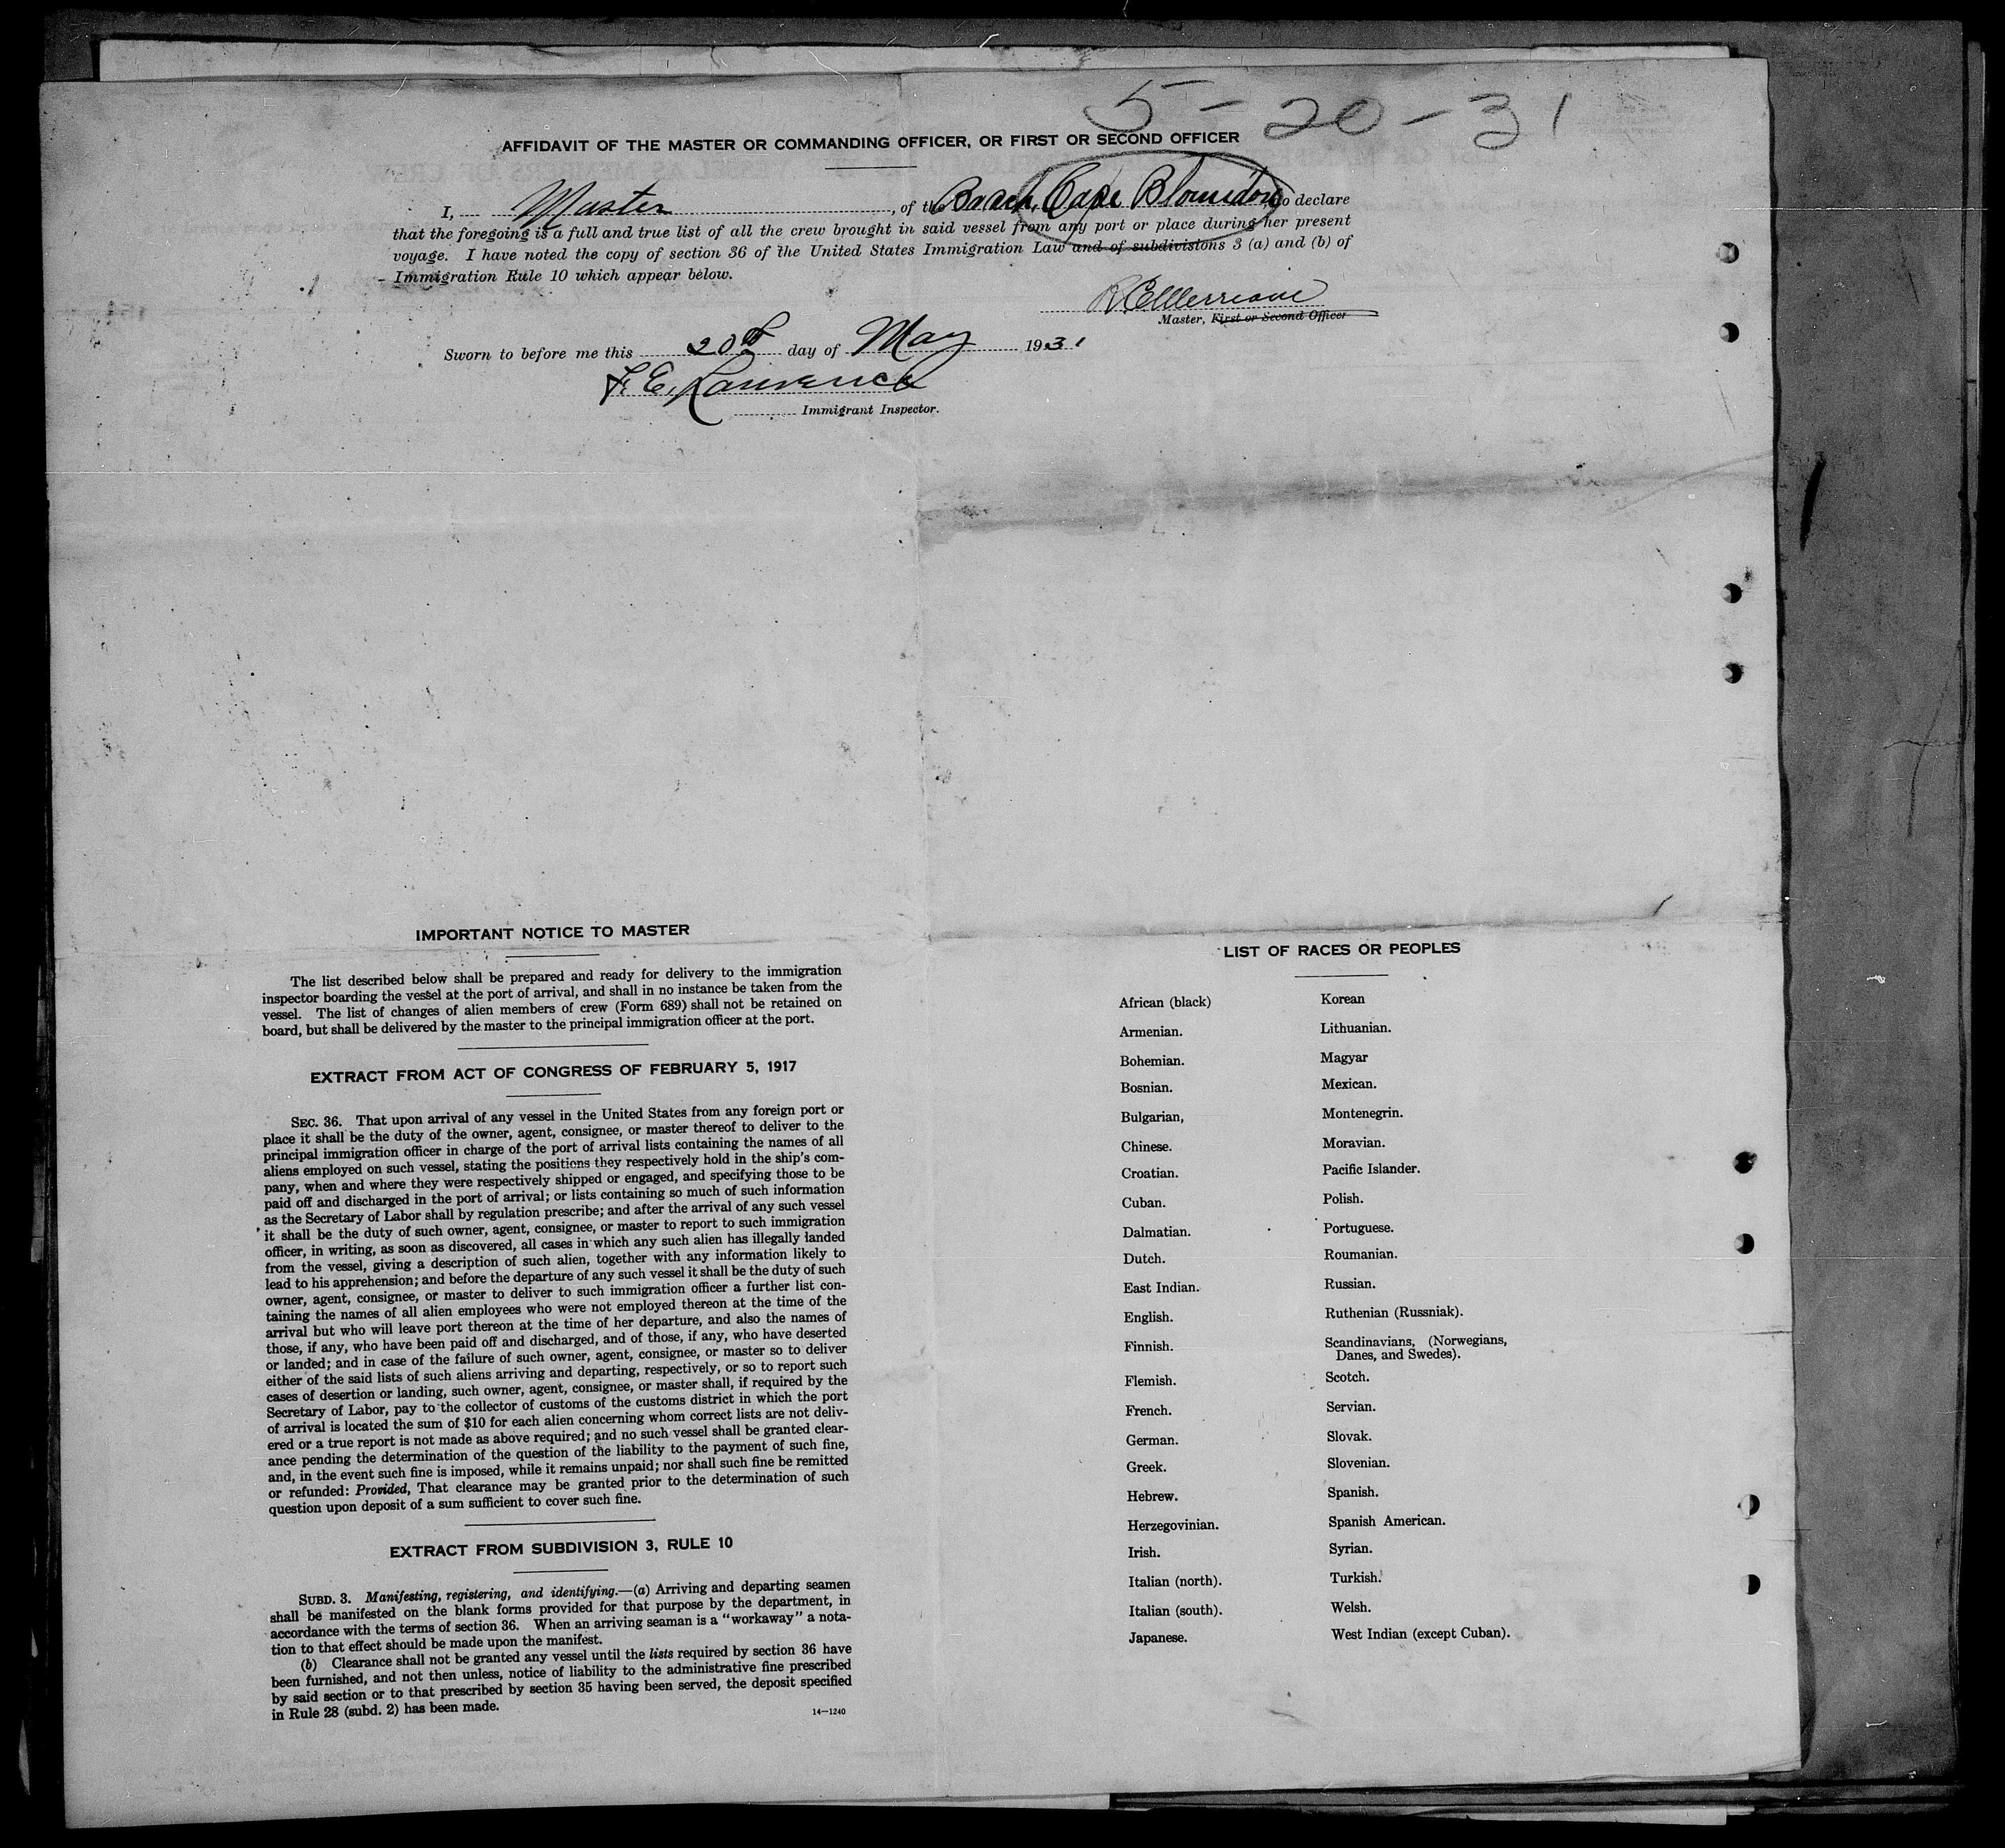 5-20-31
AFFIDAVIT OF THE MASTER OR COMMANDING OFFICER, OR FIRST OR SECOND OFFICER
I, Master, of the Cape Blomidon do declare
that the foregoing is a full and true list of all the crew brought in said vessel from any port or place during her present
voyage. I have noted the copy of section 36 of the United States Immigration Law and of subdivisions 3 (a) and (b) of
Immigration Rule 10 which appear below.
Master, First or Second Officer
Sworn to before me this 20th day of May 1931
F. E. Lawrence
Immigrant Inspector.
IMPORTANT NOTICE TO MASTER
The list described below shall be prepared and ready for delivery to the immigration
inspector boarding the vessel at the port of arrival, and shall in no instance be taken from the
vessel. The list of changes of alien members of crew (Form 689) shall not be retained on
board, but shall be delivered by the master to the principal immigration officer at the port.
EXTRACT FROM ACT OF CONGRESS OF FEBRUARY 5, 1917
SEC. 36. That upon arrival of any vessel in the United States from any foreign port or
place it shall be the duty of the owner, agent, consignee, or master thereof to deliver to the
principal immigration officer in charge of the port of arrival lists containing the names of all
aliens employed on such vessel, stating the positions they respectively hold in the ship's com-
pany, when and where they were respectively shipped or engaged, and specifying those to be
paid off and discharged in the port of arrival; or lists containing so much of such information
as the Secretary of Labor shall by regulation prescribe; and after the arrival of any such vessel
it shall be the duty of such owner, agent, consignee, or master to report to such immigration
officer, in writing, as soon as discovered, all cases in which any such alien has illegally landed
from the vessel, giving a description of such alien, together with any information likely to
lead to his apprehension; and before the departure of any such vessel it shall be the duty of such
owner, agent, consignee, or master to deliver to such immigration officer a further list con-
taining the names of all alien employees who were not employed thereon at the time of the
arrival but who will leave port thereon at the time of her departure, and also the names of
those, if any, who have been paid off and discharged, and of those, if any, who have deserted
or landed; and in case of the failure of such owner, agent, consignee, or master so to deliver
either of the said lists of such aliens arriving and departing, respectively, or so to report such
cases of desertion or landing, such owner, agent, consignee, or master shall, if required by the
Secretary of Labor, pay to the collector of customs of the customs district in which the port
of arrival is located the sum of $10 for each alien concerning whom correct lists are not deliv-
ered or a true report is not made as above required; and no such vessel shall be granted clear-
ance pending the determination of the question of the liability to the payment of such fine,
and, in the event such fine is imposed, while it remains unpaid; nor shall such fine be remitted
or refunded: Provided, That clearance may be granted prior to the determination of such
question upon deposit of a sum sufficient to cover such fine.
EXTRACT FROM SUBDIVISION 3, RULE 10
SUBD. 3. Manifesting, registering, and identifying.—(a) Arriving and departing seamen
shall be manifested on the blank forms provided for that purpose by the department, in
accordance with the terms of section 36. When an arriving seaman is a "workaway" a nota-
tion to that effect should be made upon the manifest.
(b) Clearance shall not be granted any vessel until the lists required by section 36 have
been furnished, and not then unless, notice of liability to the administrative fine prescribed
by said section or to that prescribed by section 35 having been served, the deposit specified
in Rule 28 (subd. 2) has been made.
14—1240
LIST OF RACES OR PEOPLES
African (black)
Armenian.
Bohemian.
Bosnian.
Bulgarian,
Chinese.
Croatian.
Cuban.
Dalmatian.
Dutch.
East Indian.
English.
Finnish.
Flemish.
French.
German.
Greek.
Hebrew.
Herzegovinian.
Irish.
Italian (north).
Italian (south).
Japanese.
Korean
Lithuanian.
Magyar
Mexican.
Montenegrin.
Moravian.
Pacific Islander.
Polish.
Portuguese.
Roumanian.
Russian.
Ruthenian (Russniak).
Scandinavians, (Norwegians,
Danes, and Swedes).
Scotch.
Servian.
Slovak.
Slovenian.
Spanish.
Spanish American.
Syrian.
Turkish.
Welsh.
West Indian (except Cuban).